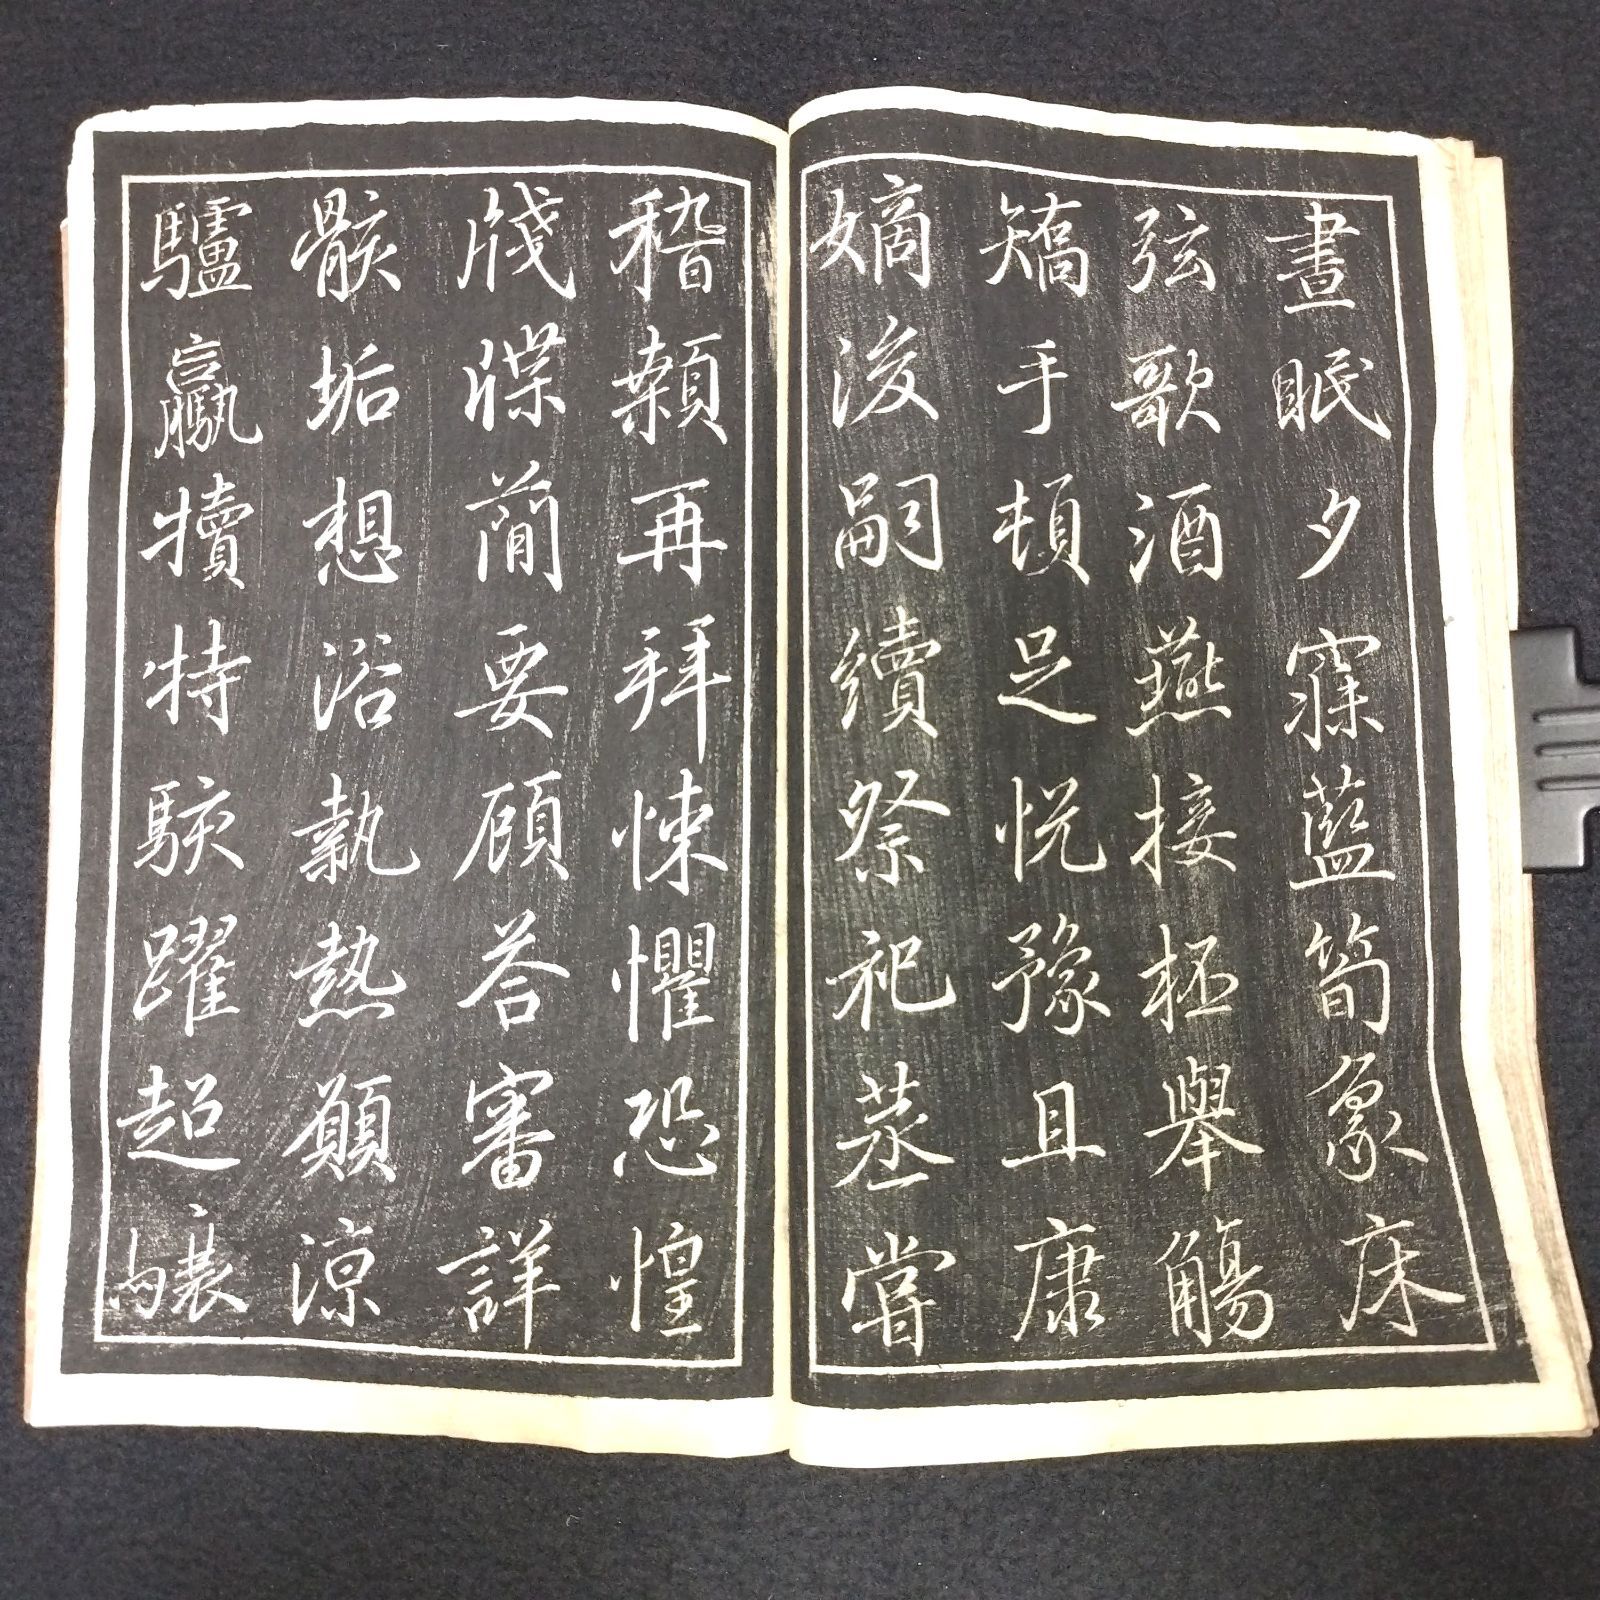 晝眠夕寐藍筍象床
弦歌酒燕接柸舉觴
矯手頓足悅豫且康
嫡後嗣續祭祀蒸嘗
稽顙再拜悚懼恐惶
牋牒簡要顧荅審詳
骸垢想浴執熱願涼
驢驘犢特駭躍超驤